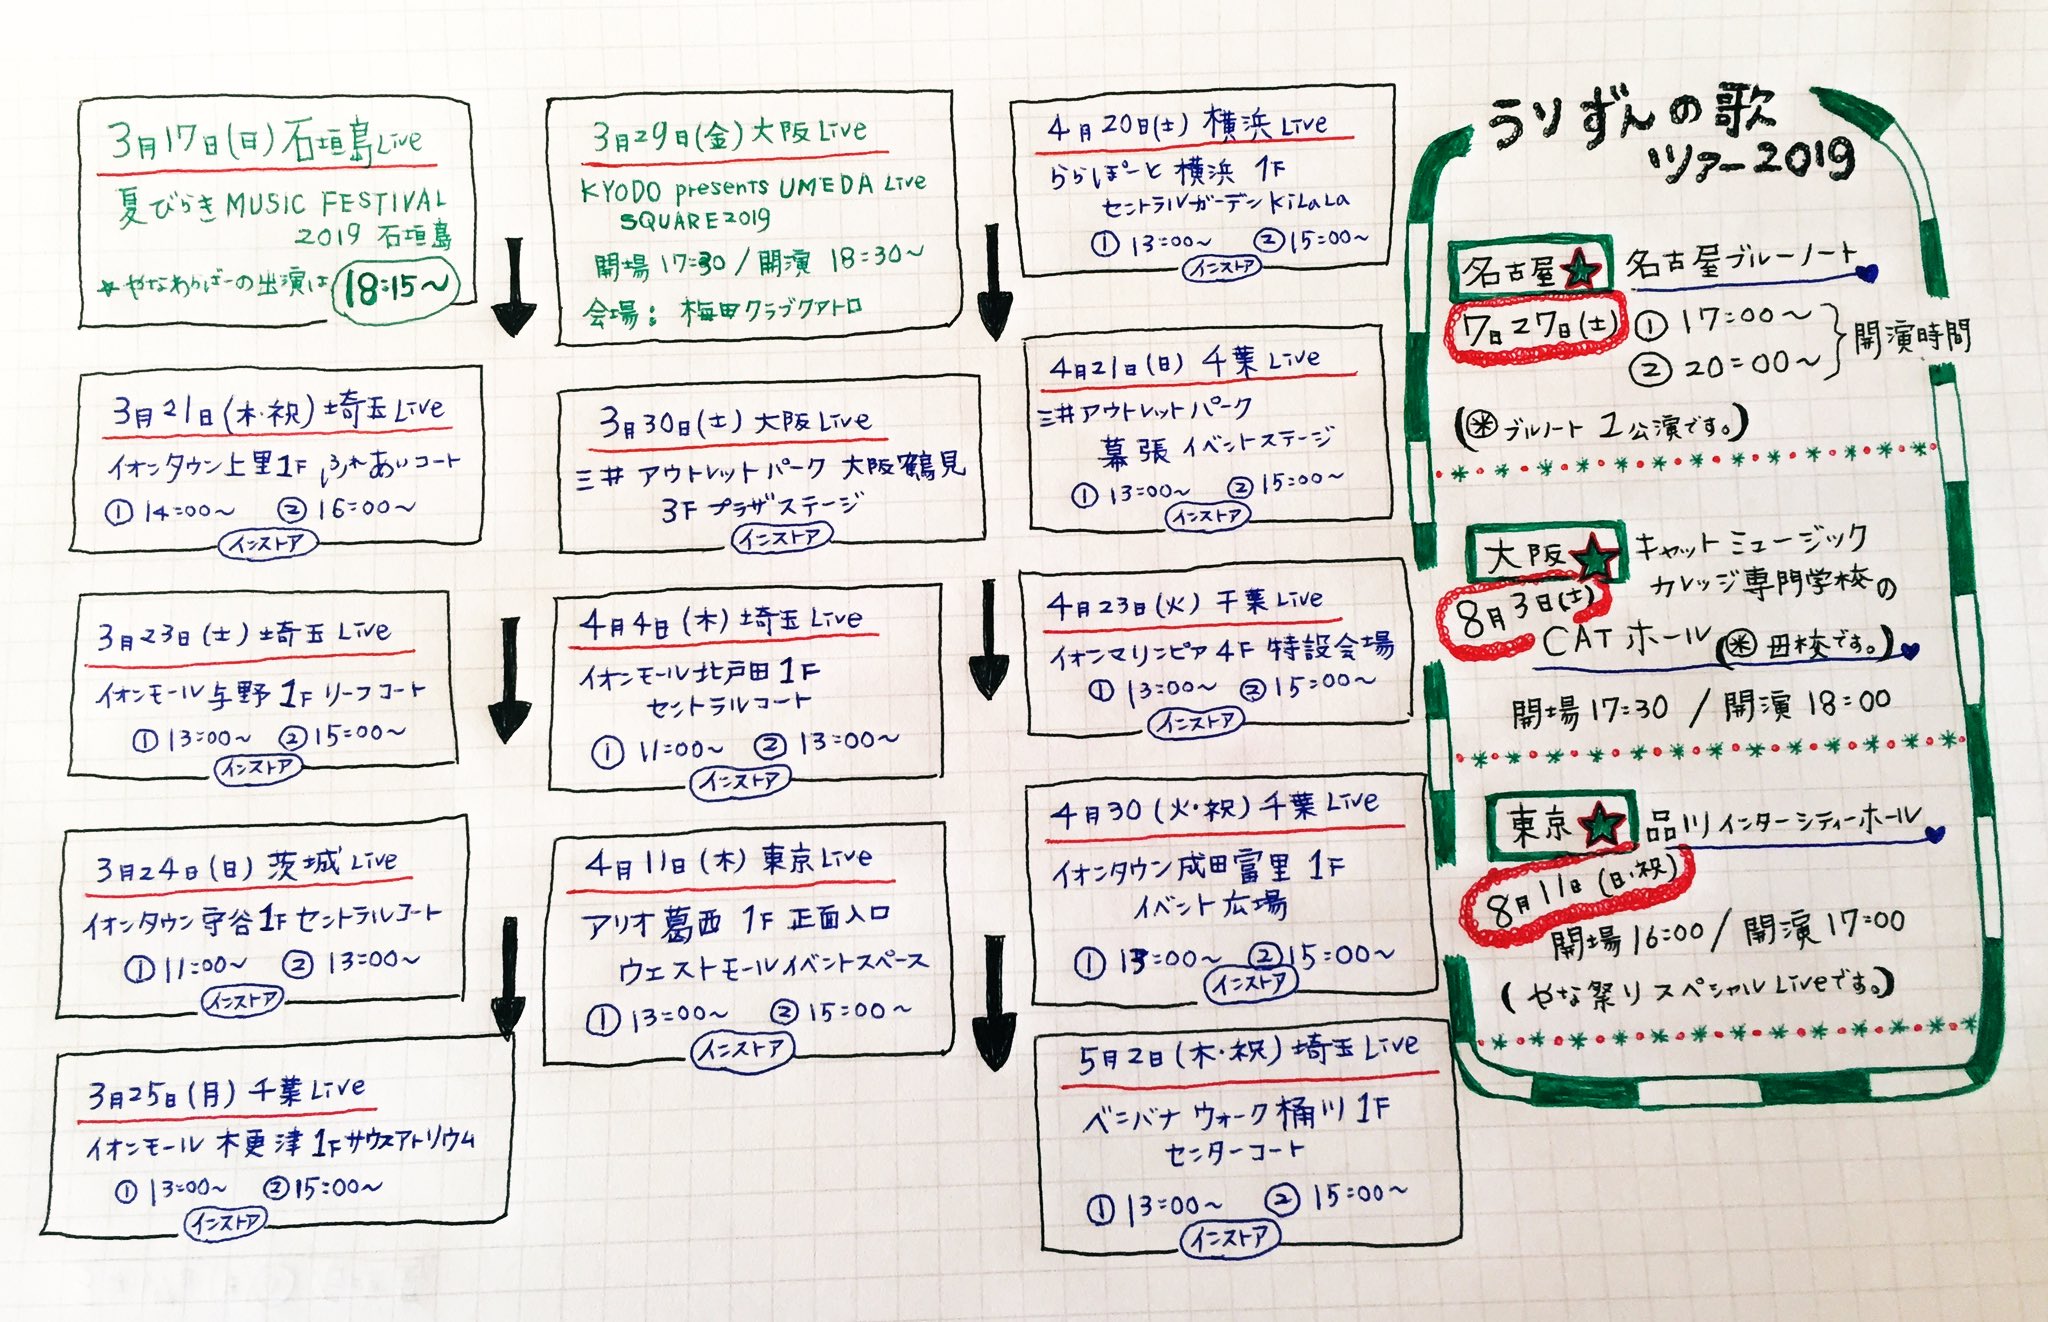 3月17日(日)石垣島Live
夏びらき MUSIC FESTIVAL
2019 石垣島
*やなわらばーの出演は 18:15〜
3月21日(木・祝)埼玉Live
イオンタウン上里1F ふれあいコート
① 14:00〜 ② 16:00〜
インストア
3月23日(土)埼玉Live
イオンモール与野1Fリーフコート
① 13:00〜 ② 15:00〜
インストア
3月24日(日)茨城Live
イオンタウン守谷1Fセントラルコート
① 11:00〜 ② 13:00〜
インストア
3月25日(月)千葉Live
イオンモール木更津1Fサウスアトリウム
① 13:00〜 ② 15:00〜
インストア
3月29日(金)大阪Live
KYODO presents UMEDA Live
SQUARE2019
開場 17:30 / 開演 18:30〜
会場: 梅田クラブクアトロ
3月30日(土)大阪Live
三井アウトレットパーク 大阪鶴見
3F プラザステージ
インストア
4月4日(木)埼玉Live
イオンモール北戸田1F
セントラルコート
① 11:00〜 ② 13:00〜
インストア
4月11日(木)東京Live
アリオ葛西 1F 正面入口
ウエストモールイベントスペース
① 13:00〜 ② 15:00〜
インストア
4月20日(土)横浜Live
ららぽーと横浜 1F
セントラルガーデンKiLaLa
① 13:00〜 ② 15:00〜
インストア
4月21日(日)千葉Live
三井アウトレットパーク
幕張イベントステージ
① 13:00〜 ② 15:00〜
インストア
4月23日(火)千葉Live
イオンマリンピア4F 特設会場
① 13:00〜 ② 15:00〜
インストア
4月30(火・祝)千葉Live
イオンタウン成田富里1F
イベント広場
① 13:00〜 ② 15:00〜
インストア
5月2日(木・祝)埼玉Live
ベニバナウォーク桶川1F
センターコート
① 13:00〜 ② 15:00〜
インストア
うりずんの歌
ツアー2019
名古屋★ 名古屋ブルーノート
7月27日(土) ① 17:00〜
② 20:00〜 } 開演時間
(※ブルノート 2公演です。)
大阪★ キャットミュージック
カレッジ専門学校の
8月3日(土) CATホール(※母校です。)
開場17:30 / 開演18:00
東京★ 品川インターシティーホール
8月11日(日・祝)
開場16:00 / 開演17:00
(やな祭りスペシャルLiveです。)